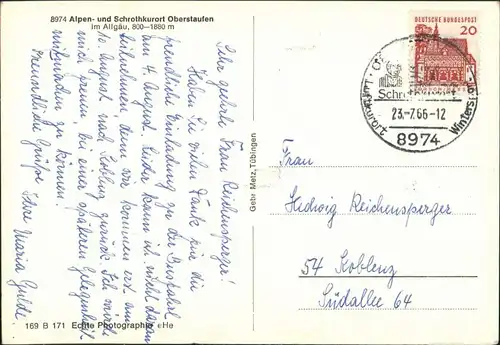 8974 Alpen- und Schrothkurort Oberstaufen
im Allgäu, 800–1880 m
Sehr geehrte Frau Reichensperger!
Haben Sie vielen Dank für die
freundliche Einladung zu der Busfahrt
am 4. August. Leider kann ich nicht daran
teilnehmen, denn wir kommen erst am
10. August nach Koblenz zurück. Ich würde
mich freuen, bei einer späteren Gelegenheit
mitfahren zu können.
Freundliche Grüße
Ihre Maria Gulde
169 B 171 Echte Photographie
Gebr. Metz, Tübingen
DEUTSCHE BUNDESPOST
20
Schro
23.-7.66-12
Kurort
Winters
8974
Frau
Hedwig Reichensperger
54 Koblenz
Südallee 64